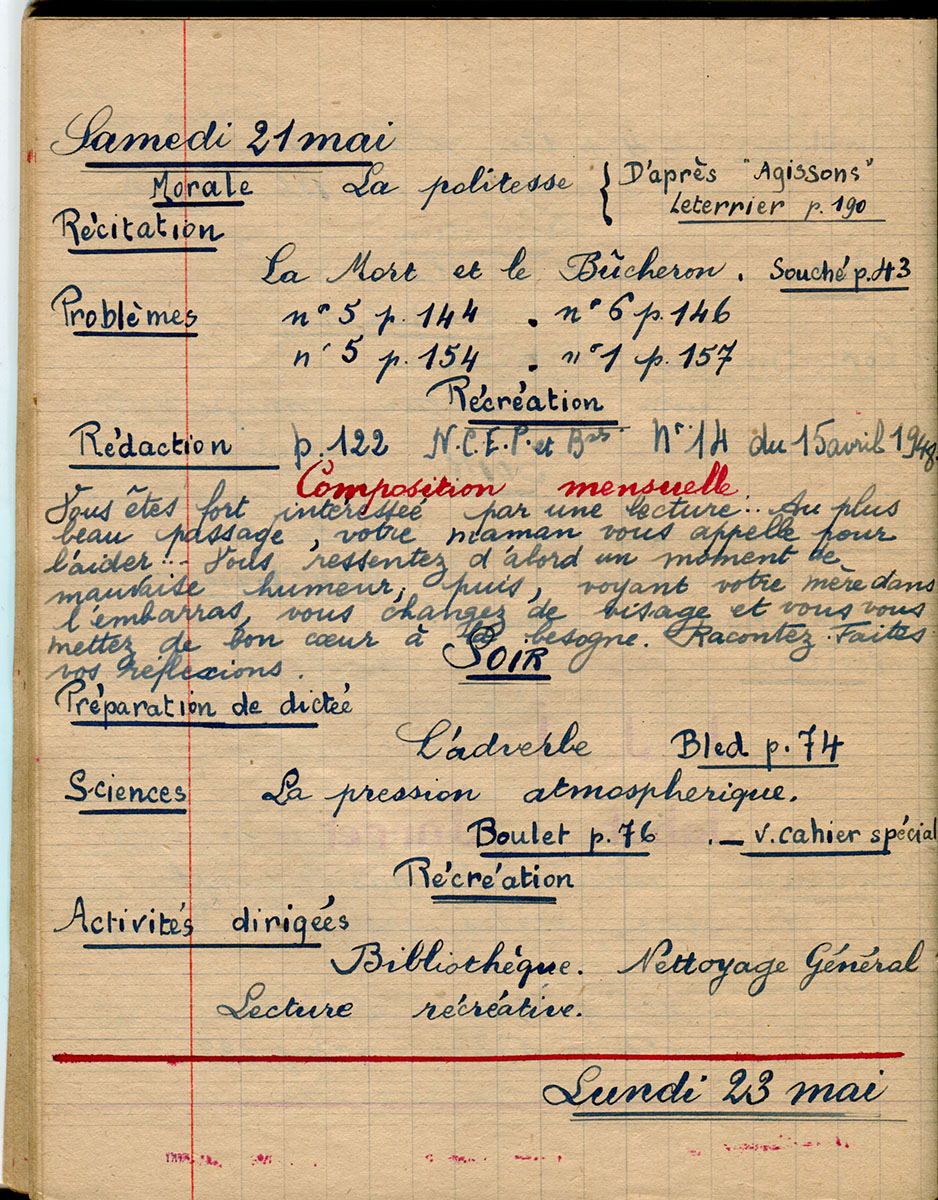 Samedi 21 mai
Morale La politesse { D'après "Agissons"
Leterrier p. 190
Récitation
La Mort et le Bûcheron. Souché p. 43
Problèmes n° 5 p. 144 . n° 6 p. 146
n° 5 p. 154 . n° 1 p. 157
Récréation
Rédaction p. 122 N.C.E.P. et Bses N° 14 du 15 avril 1948.
Composition mensuelle
Vous êtes fort intéressé par une lecture... Au plus
beau passage, votre maman vous appelle pour
l'aider... Vous ressentez d'abord un moment de
mauvaise humeur, puis, voyant votre mère dans
l'embarras, vous changez de visage et vous vous
mettez de bon cœur à la besogne. Racontez. Faites
vos réflexions.
SOIR
Préparation de dictée
L'adverbe Bled p. 74
Sciences La pression atmospherique.
Boulet p. 76 . — v. cahier spécial
Récréation
Activités dirigées
Bibliothèque. Nettoyage Général
Lecture récréative.
Lundi 23 mai